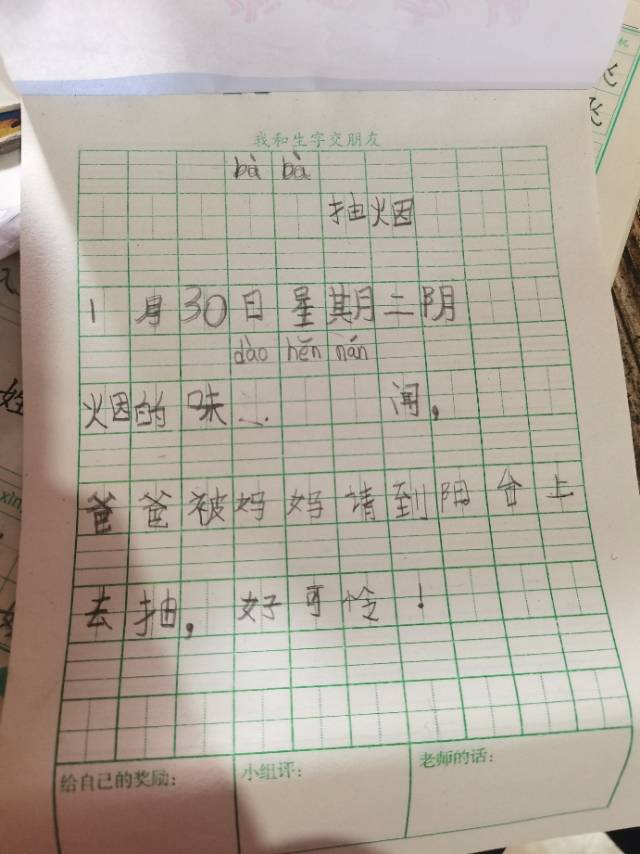 我和生字交朋友
bà bà
抽烟
1月30日 星期二 阴
dào hěn nán
烟的味 闻,
爸爸被妈妈请到阳台上
去抽,好可怜!
给自己的奖励:
小组评:
老师的话: